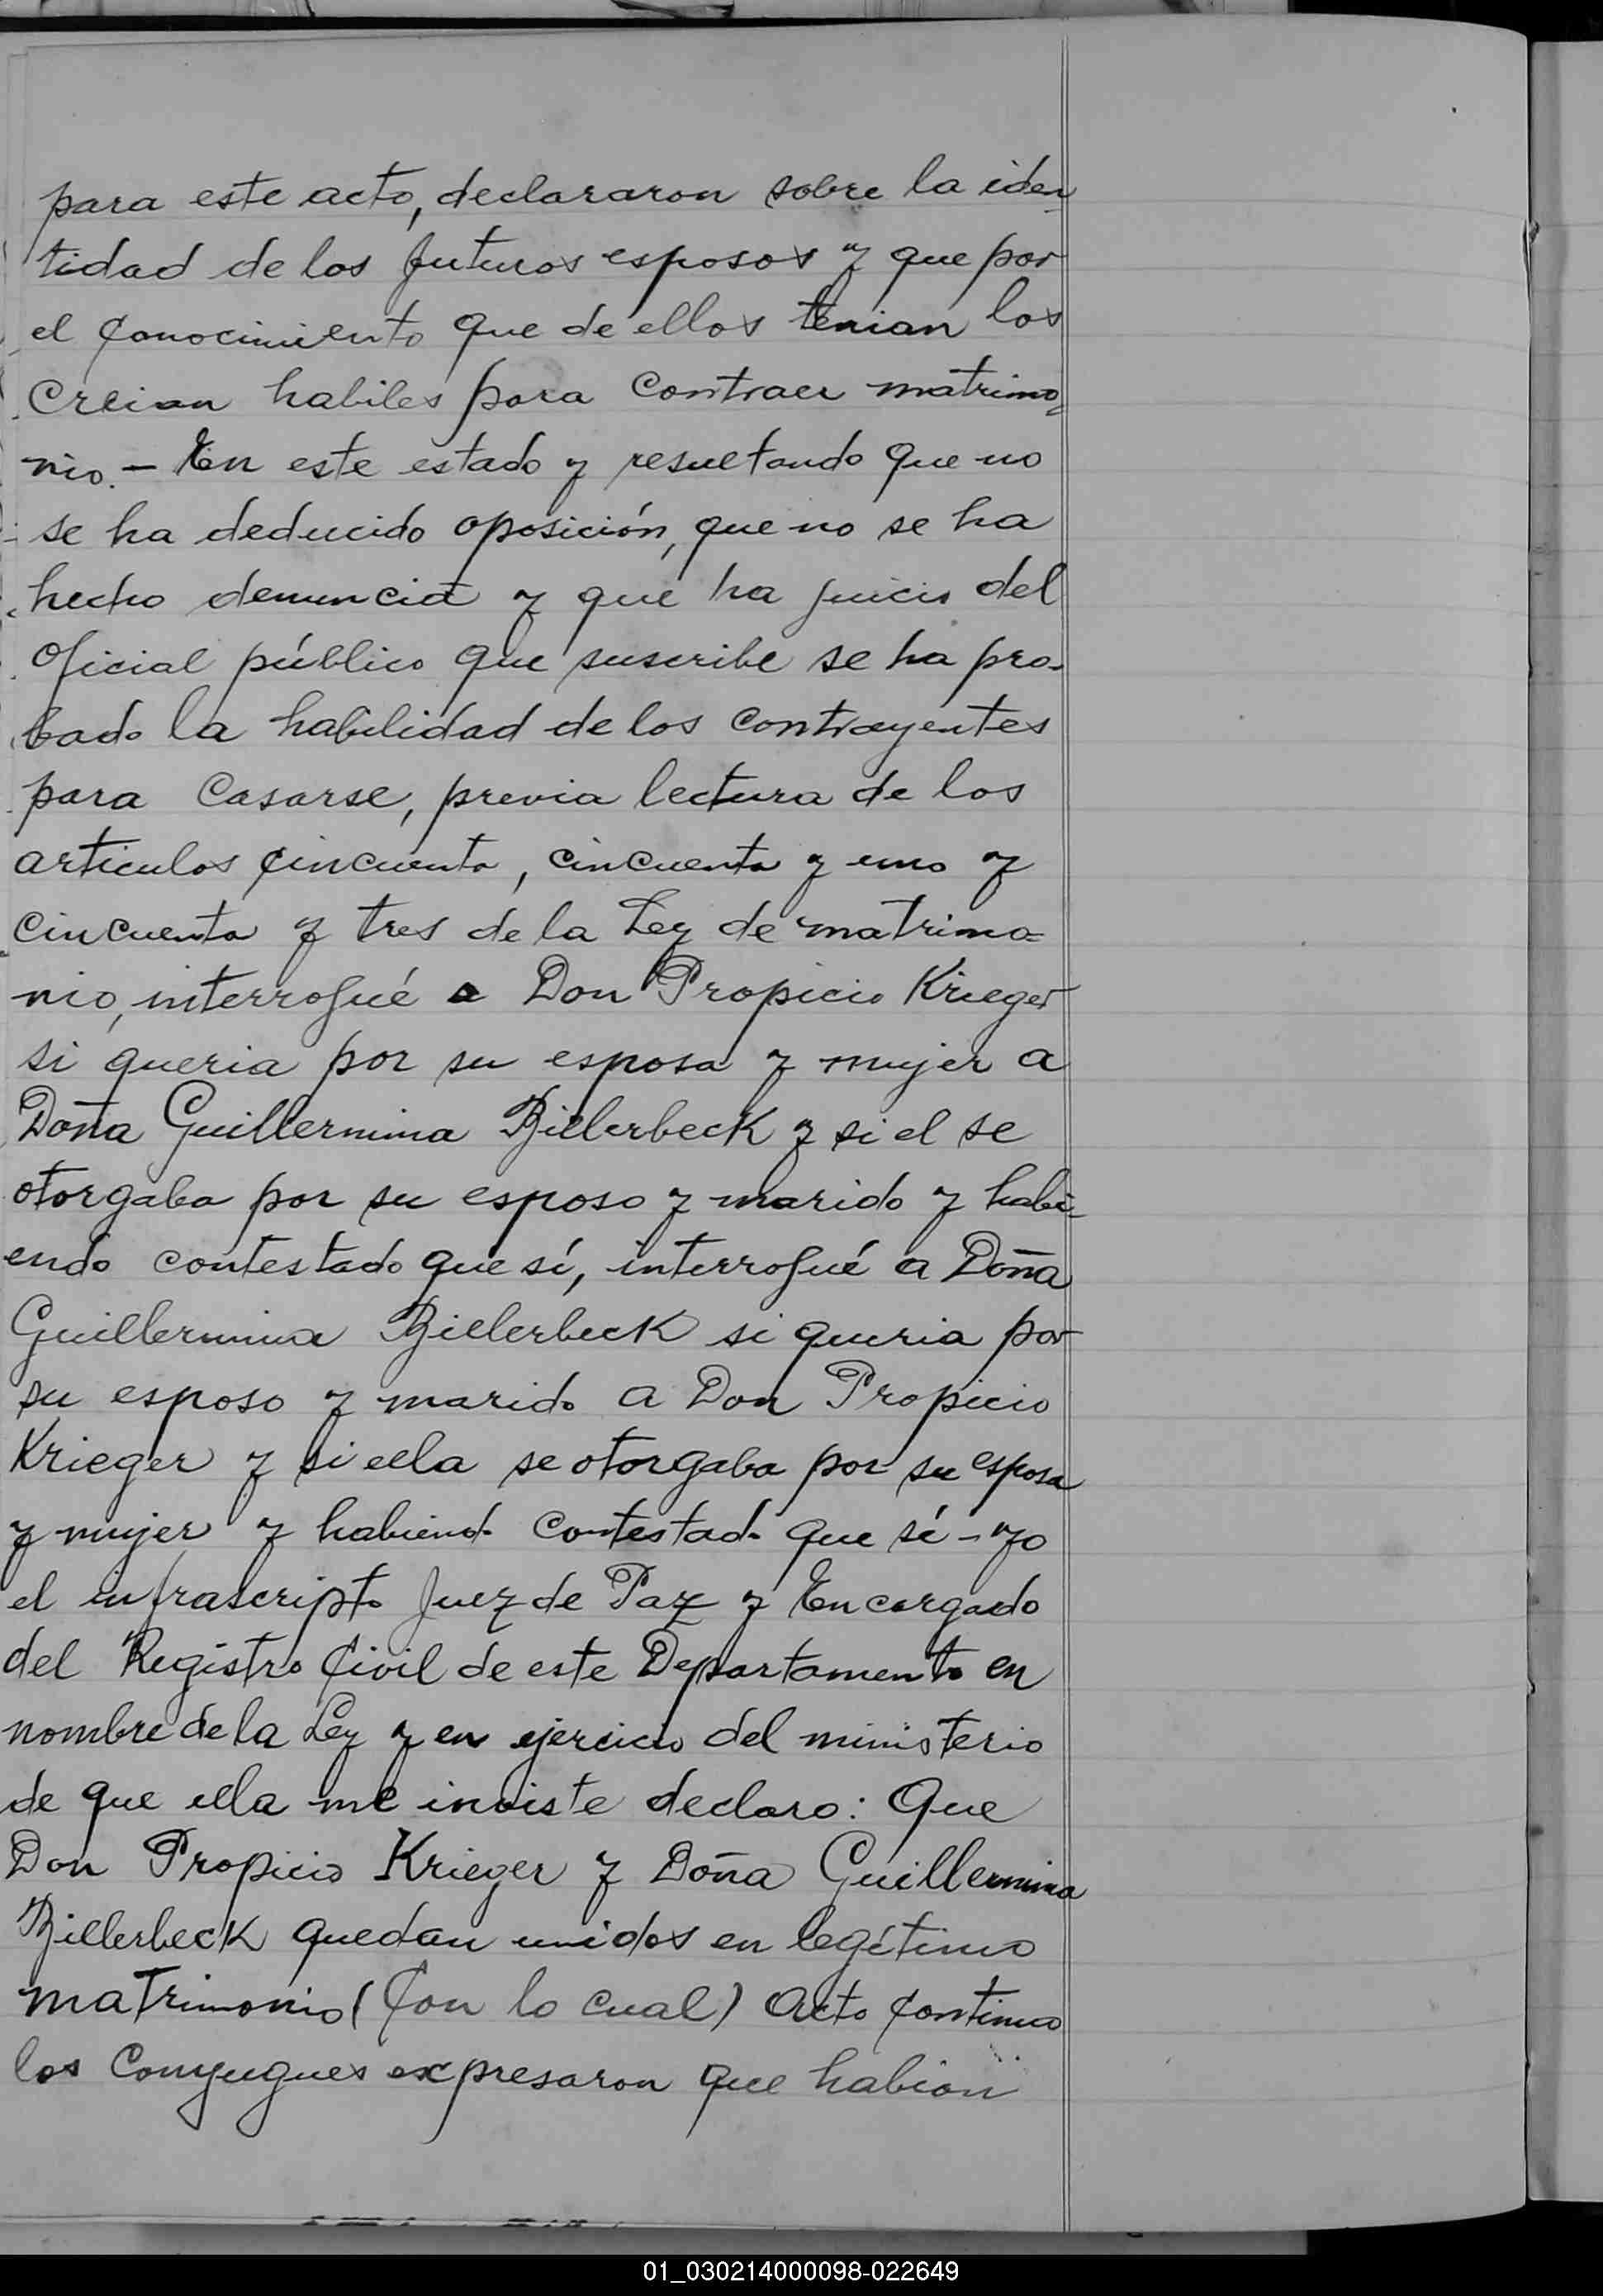 para este acto, declararon sobre la iden
tidad de los futuros esposos y que por
el conocimiento que de ellos tenian los
creian habiles para contraer matrimo
nio. - En este estado y resultando que no
se ha deducido oposición, que no se ha
hecho denuncia y que ha juicio del
oficial público que suscribe se ha pro-
bado la habilidad de los contrayentes
para casarse, previa lectura de los
articulos cincuenta, cincuenta y uno y
cincuenta y tres de la Ley de matrimo=
nio, interrogué a Don Propicio Krieger
si queria por su esposa y mujer a
Doña Guillermina Billerbeck y si el se
otorgaba por su esposo y marido y habi-
endo contestado que sí, interrogué a Doña
Guillermina Billerbeck si queria por
su esposo y marido a Don Propicio
Krieger y si ella se otorgaba por su esposa
y mujer y habiendo contestado que sí - yo
el infrascripto Juez de Paz y Encargado
del Registro Civil de este Departamento en
nombre de la Ley y en ejercicio del ministerio
de que ella me inviste declaro: Que
Don Propicio Krieger y Doña Guillermina
Billerbeck quedan unidos en legítimo
matrimonio (Con lo cual) Acto continuo
los conyugues expresaron que habian
01_030214000098-022649